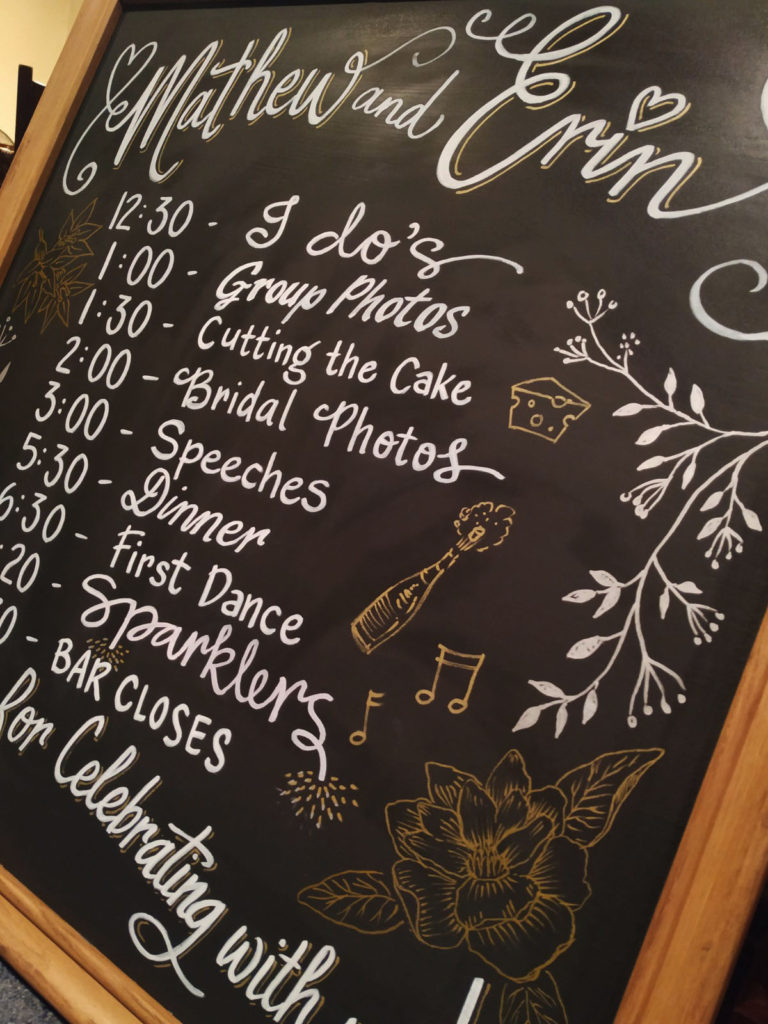 Mathew and Erin
12:30 - I do's
1:00 - Group Photos
1:30 - Cutting the Cake
2:00 - Bridal Photos
3:00 - Speeches
5:30 - Dinner
6:30 - First Dance
:20 - Sparklers
0 - BAR CLOSES
for Celebrating with